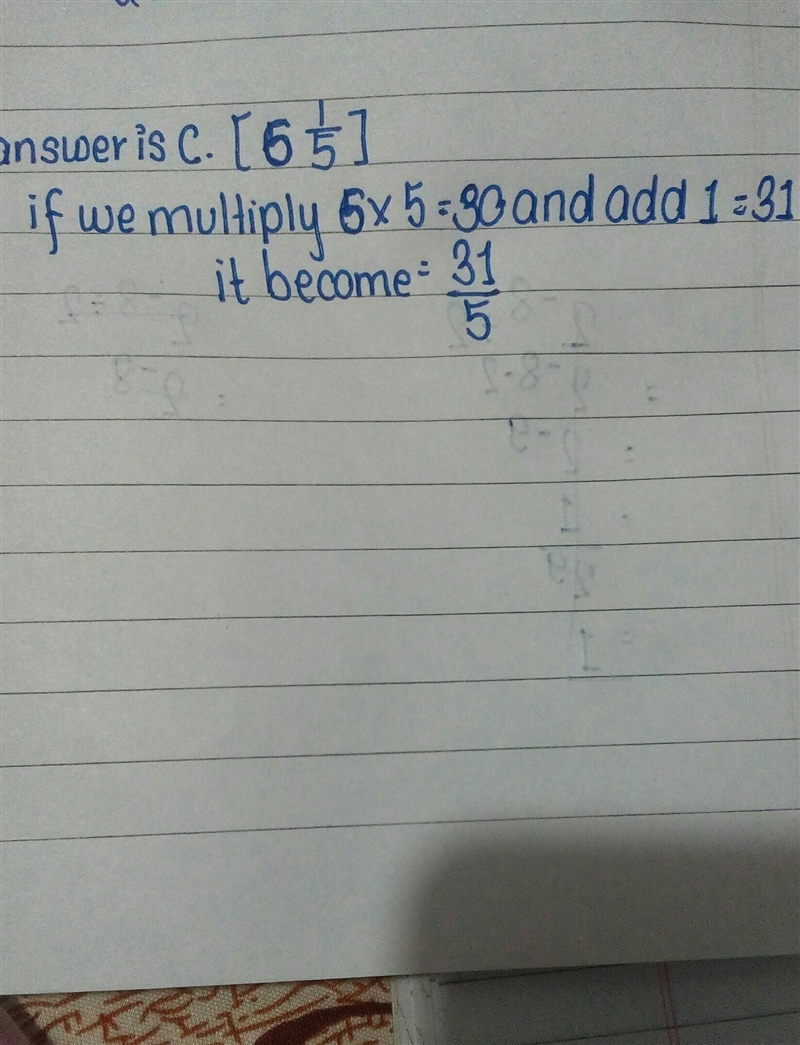 answer is C. [6 1/5]
if we multiply 6x5=30 and add 1=31
it become= 31/5